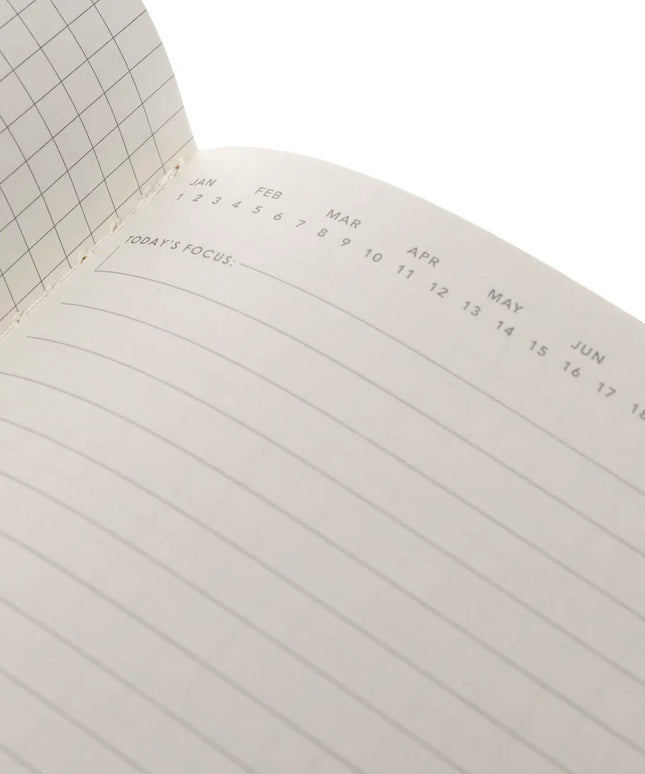 JAN FEB MAR APR MAY JUN
1 2 3 4 5 6 7 8 9 10 11 12 13 14 15 16 17 18
TODAY'S FOCUS: